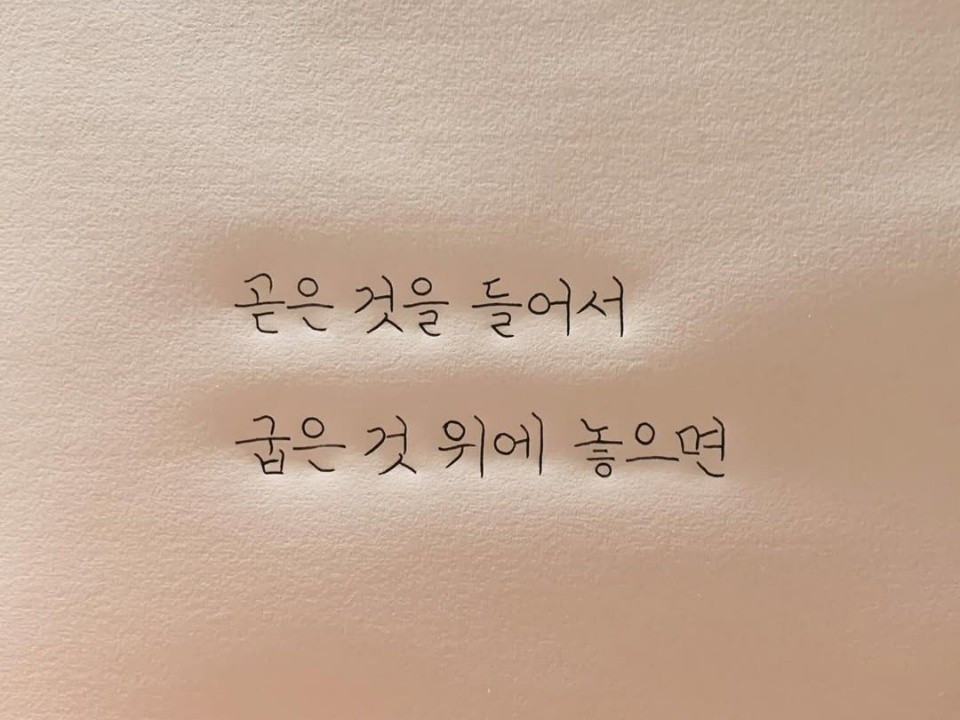 곧은 것을 들어서
굽은 것 위에 놓으면